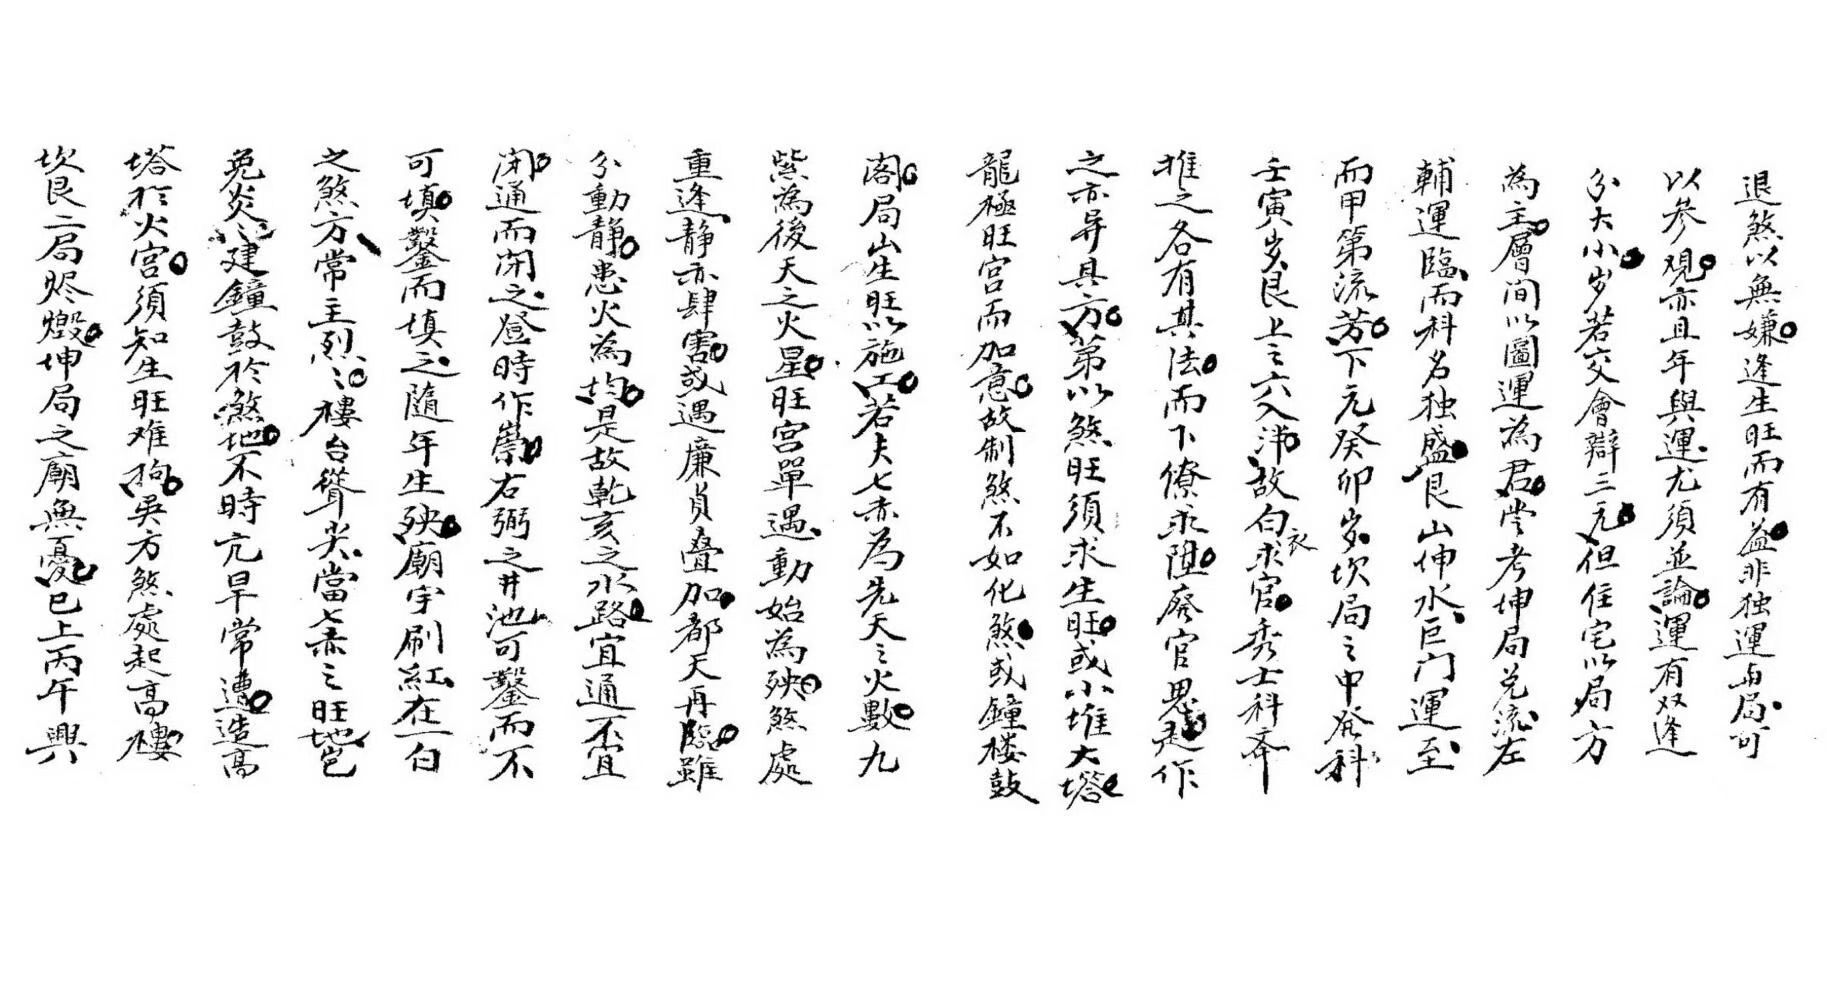 退煞以無嫌逢生旺而有益非独運与局可
以参观亦且年與運尤須並論運有双逢
分大小岁若交會辯三元但住宅以局方
為主層间以圖運為君尝考坤局兑流左
輔運臨而科名独盛艮山伸水巨门運至
而甲第流芳下元癸卯岁坎局之中発科
壬寅岁艮上之六入泮故白衣求官秀士科斉
推之各有其法而下僚求陞廃官思起作
之亦异具方第以煞旺须求生旺或小堆大塔
龍極旺宫而加意故制煞不如化煞或鐘楼鼓
阁局山生旺以施工若夫七赤為先天之火數九
紫為後天之火星旺宫單遇動始為殃煞處
重逢静亦肆害或遇廉貞叠加都天再臨雖
分動静患火為均是故乾亥之水路宜通不宜
闭通而闭之登時作祟右弼之井池可鑿而不
可填鑿而填之隨年生殃廟宇刷紅在一白
之煞方常主烈〻樓台聳尖當七赤之旺地岂
免炎〻建鐘鼓於煞地不時亢旱常遭造高
塔於火宫須知生旺难拘吳方煞處起高樓
坎艮二局烬燬坤局之廟無憂已上丙午興